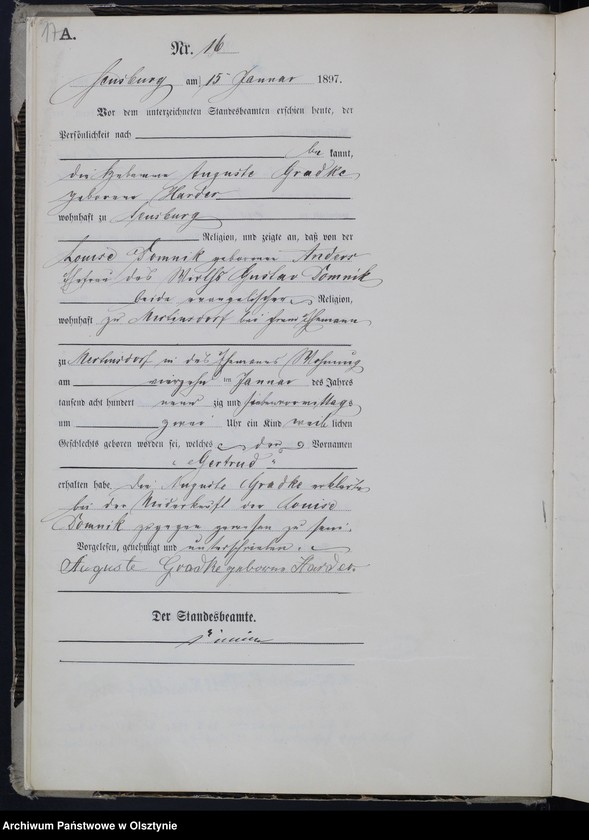 17 A.
Nr. 16
Sensburg am 15 Januar 1897.
Vor dem unterzeichneten Standesbeamten erschien heute, der
Persönlichkeit nach
be kannt,
die Hebamme Auguste Gradke
geborene Harder
wohnhaft zu Sensburg
Religion, und zeigte an, daß von der
Louise Domnik geborenen Anders
Ehefrau des Wirths Gustav Domnik
beide evangelischer Religion,
wohnhaft zu Mertinsdorf bei ihrem Ehemann
zu Mertinsdorf in des Ehemannes Wohnung
am vierzehn ten Januar des Jahres
tausend acht hundert neun zig und sieben vormittags
um zwei Uhr ein Kind weib lichen
Geschlechts geboren worden sei, welches den Vornamen
"Gertrud"
erhalten habe. Die Auguste Gradke erklärte
bei der Niederkunft der Louise
Domnik zugegen gewesen zu sein.
Vorgelesen, genehmigt und unterschrieben.
Auguste Gradke geborene Harder.
Der Standesbeamte.
Archiwum Państwowe w Olsztynie